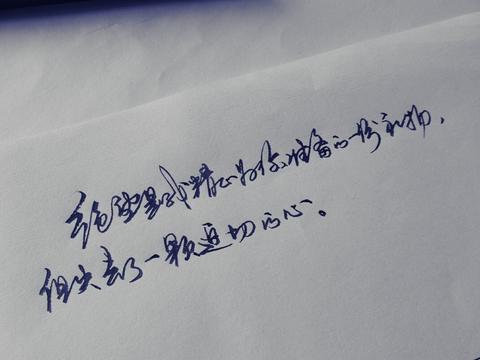 绝望是我精心为你准备的一份礼物，
但失去了一颗迫切的心。